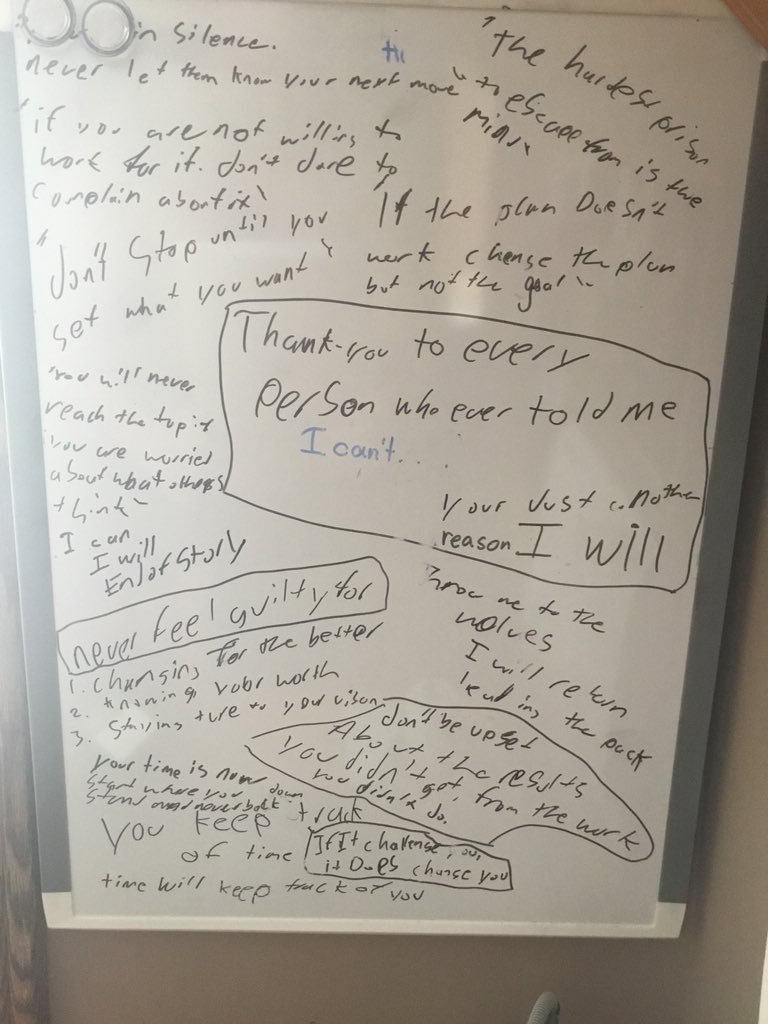 in Silence.
Hi
never let them know your next move"
"the hardest prison
to escape from is the
mind"
"if you are not willing to
work for it. don't dare to
complain about it"
If the plan Doesn't
work change the plan
but not the goal"
"don't Stop until you
get what you want"
Thank-you to every
person who ever told me
I can't...
your Just another
reason I will
"You will never
reach the top if
you are worried
about what others
think"
I can
I will
End of Story
never feel guilty for
1. changing for the better
2. knowing your worth
3. Staying ture to your vison
Throw me to the
wolves
I will return
leading the pack
don't be upset
About the results
you didn't get, from the work
you didn't do.
your time is now
start where you
stand and never back down
You keep track
of time
time will keep track of you
If It challenge you,
it Does change you